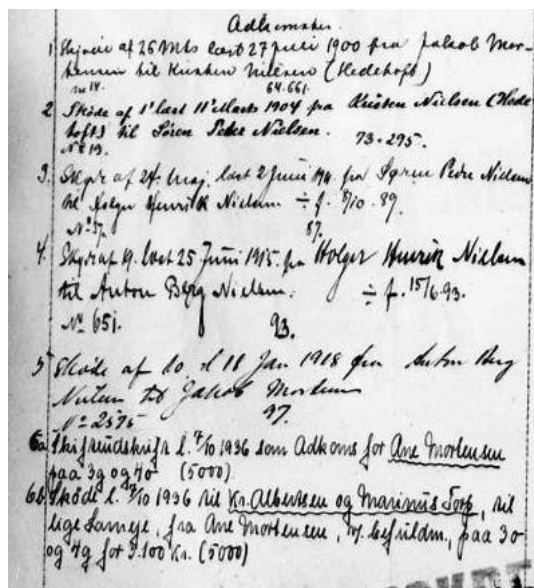 Adkomster.
1. Skjøde af 26 Mts læst 27 Juli 1900 fra Jakob Mor-
tensen til Kristen Nielsen (Hedehoft)
No 14. 64.661.
2. Skøde af 1' læst 11' Marts 1904 fra Kristen Nielsen (Hede
hoft) til Søren Peter Nielsen.
No 19. 73-295.
3. af 24. Maj læst 2 Juni fra Søren Peder Nielsen
til Holger Henrik Nielsen ÷ f. 8/10. 89.
No 57. 87.
4. af 19. læst 25 Juni 1915. fra Holger Henrik Nielsen
til Anton Berg Nielsen. ÷ f. 15/6.93.
No 651. 93.
5 Skøde af 10. 18 Jan 1918 fra Anton Berg
Nielsen til Jakob Mortensen
No 2575 97.
6a Skifteudskrift l. 7/10 1936 som Adkoms for Ane Mortensen
paa 3g og 4o (5000)
6b Skøde l. 7/10 1936 til Kr. Albertsen og Marinus Torp, til
lige Sameje, fra Ane Mortensen, m/ befuldm., paa 3o
og 4g for 3.100 Kr. (5000)